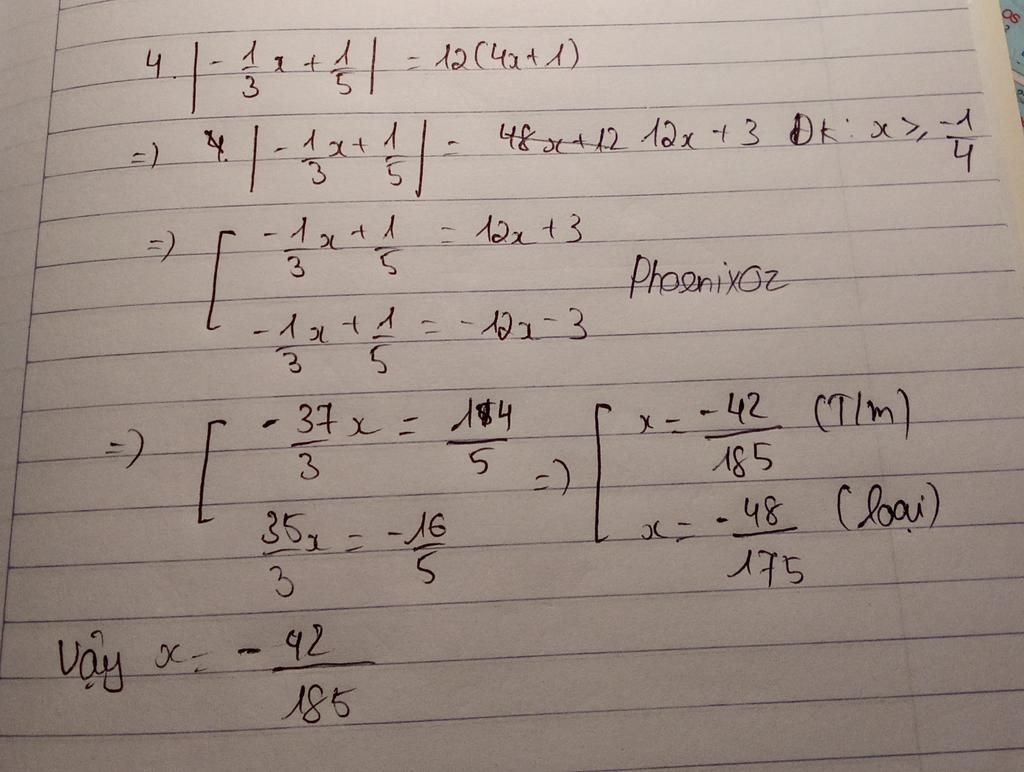 4.|-1/3 x + 1/5| = 12(4x+1)
=) 4.|-1/3 x + 1/5| = 48x+12 12x + 3 Đk: x ≥ -1/4
=) [ -1/3 x + 1/5 = 12x + 3
-1/3 x + 1/5 = -12x - 3
PhoenixOz
=) [ -37/3 x = 14/5 =) [ x = -42/185 (T/m)
35/3 x = -16/5 x = -48/175 (loại)
Vậy x = -42/185